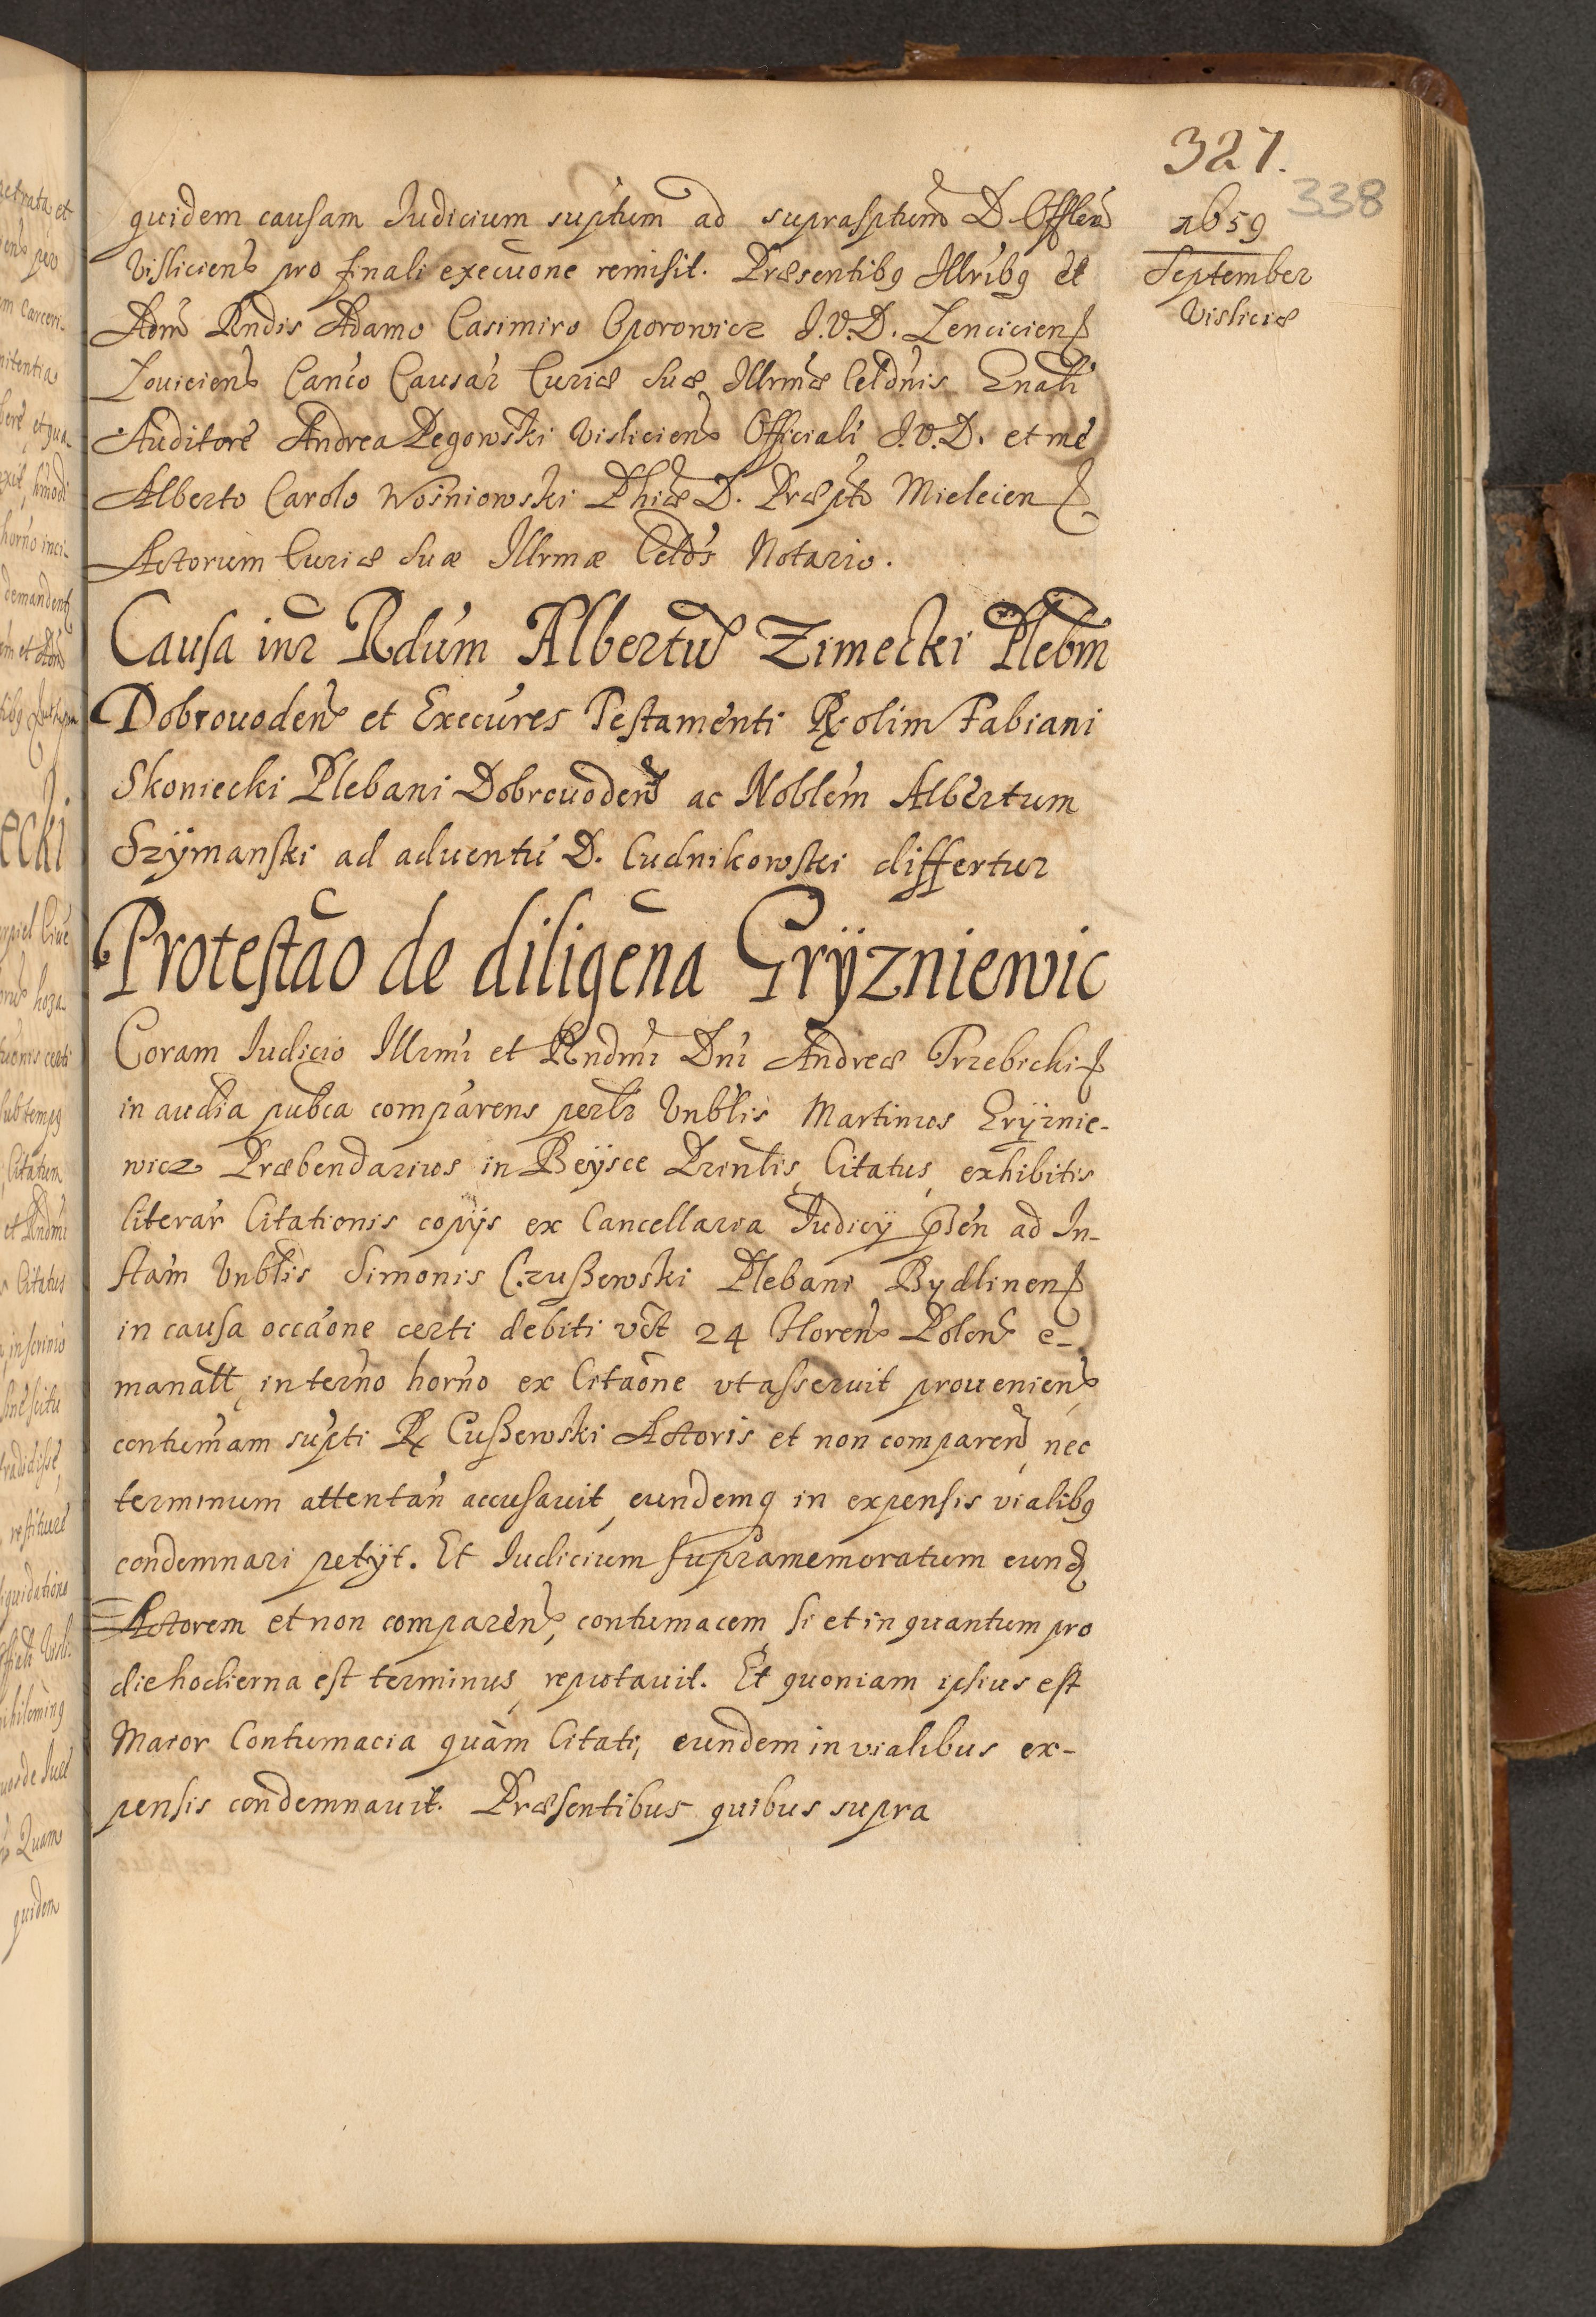 327.
338
1659
September
Visliciæ
quidem causam Iudicium sup̃tum ad suprasptum̃ D. Offlem̃
Visliciens̃ pro finali execuõne remisit. Præsentibq Illribq et
Adm̃ Rndis Adamo Casimiro Oporowicz I.V.D. Lenciciens̃
Louiciens̃ Canco Causar̃ Curiæ Suæ Illrmæ Celdnis Gnali
Auditore Andrea Pegowski Visliciens̃ Officiali I.V.D. et me
Alberto Carolo Wośniowski Phiæ D. Præpto Mieleciens̃
Actorum Curiæ Suæ Illrmæ Celdis Notario.
Causa intr̃ Rdum Albertum̃ Zimecki Plebm̃
Dobrouodens̃ et Execures Testamenti R. olim Fabiani
Skoniecki Plebani Dobrouodens̃ ac Noblem Albertum
Szÿmanski ad aduentũ D. Cudnikowski differtur
Protestão de diligẽna Grÿzniewic
Coram Iudicio Illrmi et Rndmi Dni Andreæ Trzebicki
in audia pubca comparens perlr Vnblis Martinus Grÿznie-
wicz Præbendarius in Beÿsce Prinlis, Citatus, exhibitis
literar̃ Citationis copÿs ex Cancellaria Iudicÿ pñsen ad In-
stam Vnblis Simonis Czußewski Plebani Bydlinens̃
in causa occaõne certi debiti vct 24 Florens̃ Polons̃ e-
manatt, in terño horño ex Citaõne vt asseruit proueniens̃,
contumam supti R. Cußewski Actoris et non comparens̃, nec
terminum attentan̄ accusauit, eundemq in expensis vialibq
condemnari petÿt. Et Iudicium supramemoratum eund
Actorem et non comparens̃, contumacem, si et in quantum pro
die hodierna est terminus, reputauit. Et quoniam ipsius est
Maior Contumacia quàm Citati, eundem in vialibus ex-
pensis condemnauit. Præsentibus quibus supra